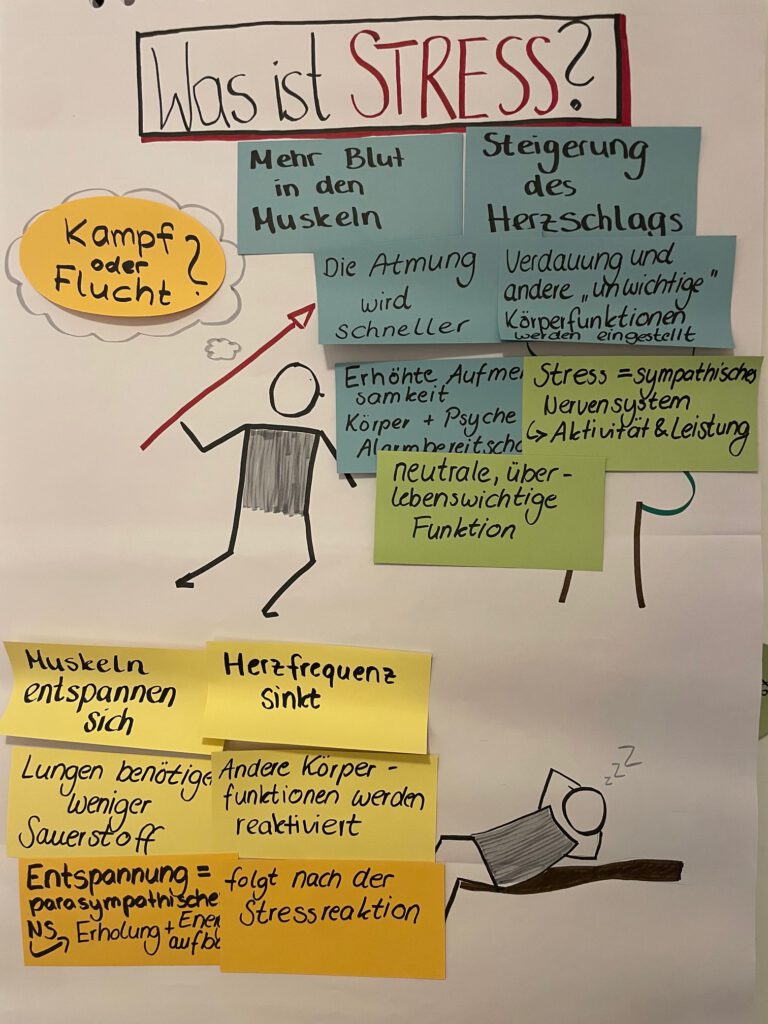 Was ist STRESS?
Mehr Blut
in den
Muskeln
Steigerung
des
Herzschlags
Kampf
oder
Flucht?
Die Atmung
wird
schneller
Verdauung und
andere „unwichtige"
Körperfunktionen
werden eingestellt
Erhöhte Aufme
samkeit
Körper + Psyche
Alarmbereitscha
Stress = sympathisches
Nervensystem
↳ Aktivität & Leistung
neutrale, über-
lebenswichtige
Funktion
Muskeln
entspannen
sich
Herzfrequenz
sinkt
Lungen benötige
weniger
Sauerstoff
Andere Körper-
funktionen werden
reaktiviert
Entspannung =
parasympathische
NS → Erholung + Ener
aufba
folgt nach der
Stressreaktion
zzZ